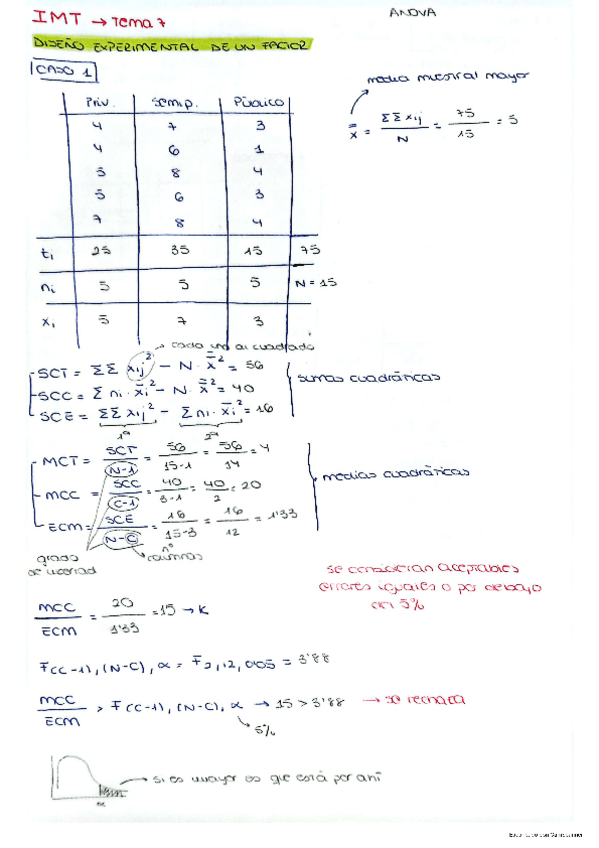 IMT → Tema 7
ANOVA
DISEÑO EXPERIMENTAL DE UN FACTOR
CASO 1
media muestral mayor
x̿ = ΣΣ xij / N = 75 / 15 = 5
Priv. Semip. Público
4 7 3
4 6 1
5 8 4
5 6 3
7 8 4
ti 25 35 15 75
ni 5 5 5 N = 15
xi 5 7 3
→ cada uno al cuadrado
SCT = ΣΣ xij² - N · x̿² = 56
SCC = Σ ni · x̄i² - N · x̿² = 40
SCE = ΣΣ xij² - Σ ni · x̄i² = 16
sumas cuadráticas
1ª 2ª
MCT = SCT / N-1 = 56 / 15-1 = 56 / 14 = 4
MCC = SCC / C-1 = 40 / 3-1 = 40 / 2 = 20
ECM = SCE / N-C = 16 / 15-3 = 16 / 12 = 1'33
medias cuadráticas
grados de libertad
nº columnas
se consideran aceptables
errores iguales o por debajo
del 5%
MCC / ECM = 20 / 1'33 = 15 → K
F(C-1), (N-C), α = F2, 12, 0'05 = 3'88
MCC / ECM > F(C-1), (N-C), α → 15 > 3'88 → se rechaza
↳ 5%
→ si es mayor es que está por ahí
α